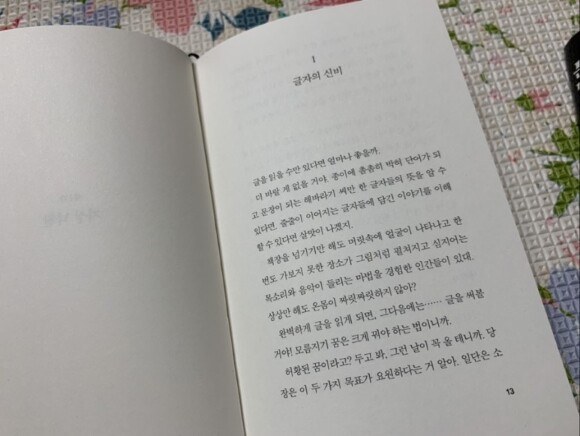 I
글자의 신비
글을 읽을 수만 있다면 얼마나 좋을까.
더 바랄 게 없을 거야. 종이에 촘촘히 박혀 단어가 되
고 문장이 되는 해바라기 씨만 한 글자들의 뜻을 알 수
있다면. 줄줄이 이어지는 글자들에 담긴 이야기를 이해
할 수 있다면 살맛이 나겠지.
책장을 넘기기만 해도 머릿속에 얼굴이 나타나고 한
번도 가보지 못한 장소가 그림처럼 펼쳐지고 심지어는
목소리와 음악이 들리는 마법을 경험한 인간들이 있대.
상상만 해도 온몸이 짜릿짜릿하지 않아?
완벽하게 글을 읽게 되면, 그다음에는…… 글을 써볼
거야! 모름지기 꿈은 크게 꿔야 하는 법이니까.
허황된 꿈이라고? 두고 봐, 그런 날이 꼭 올 테니까. 당
장은 이 두 가지 목표가 요원하다는 거 알아. 일단은 소
13